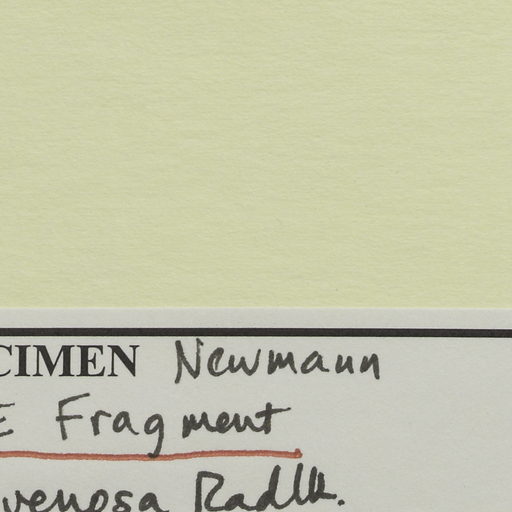 CIMEN Newmann
E Fragment
venosa Radlk.